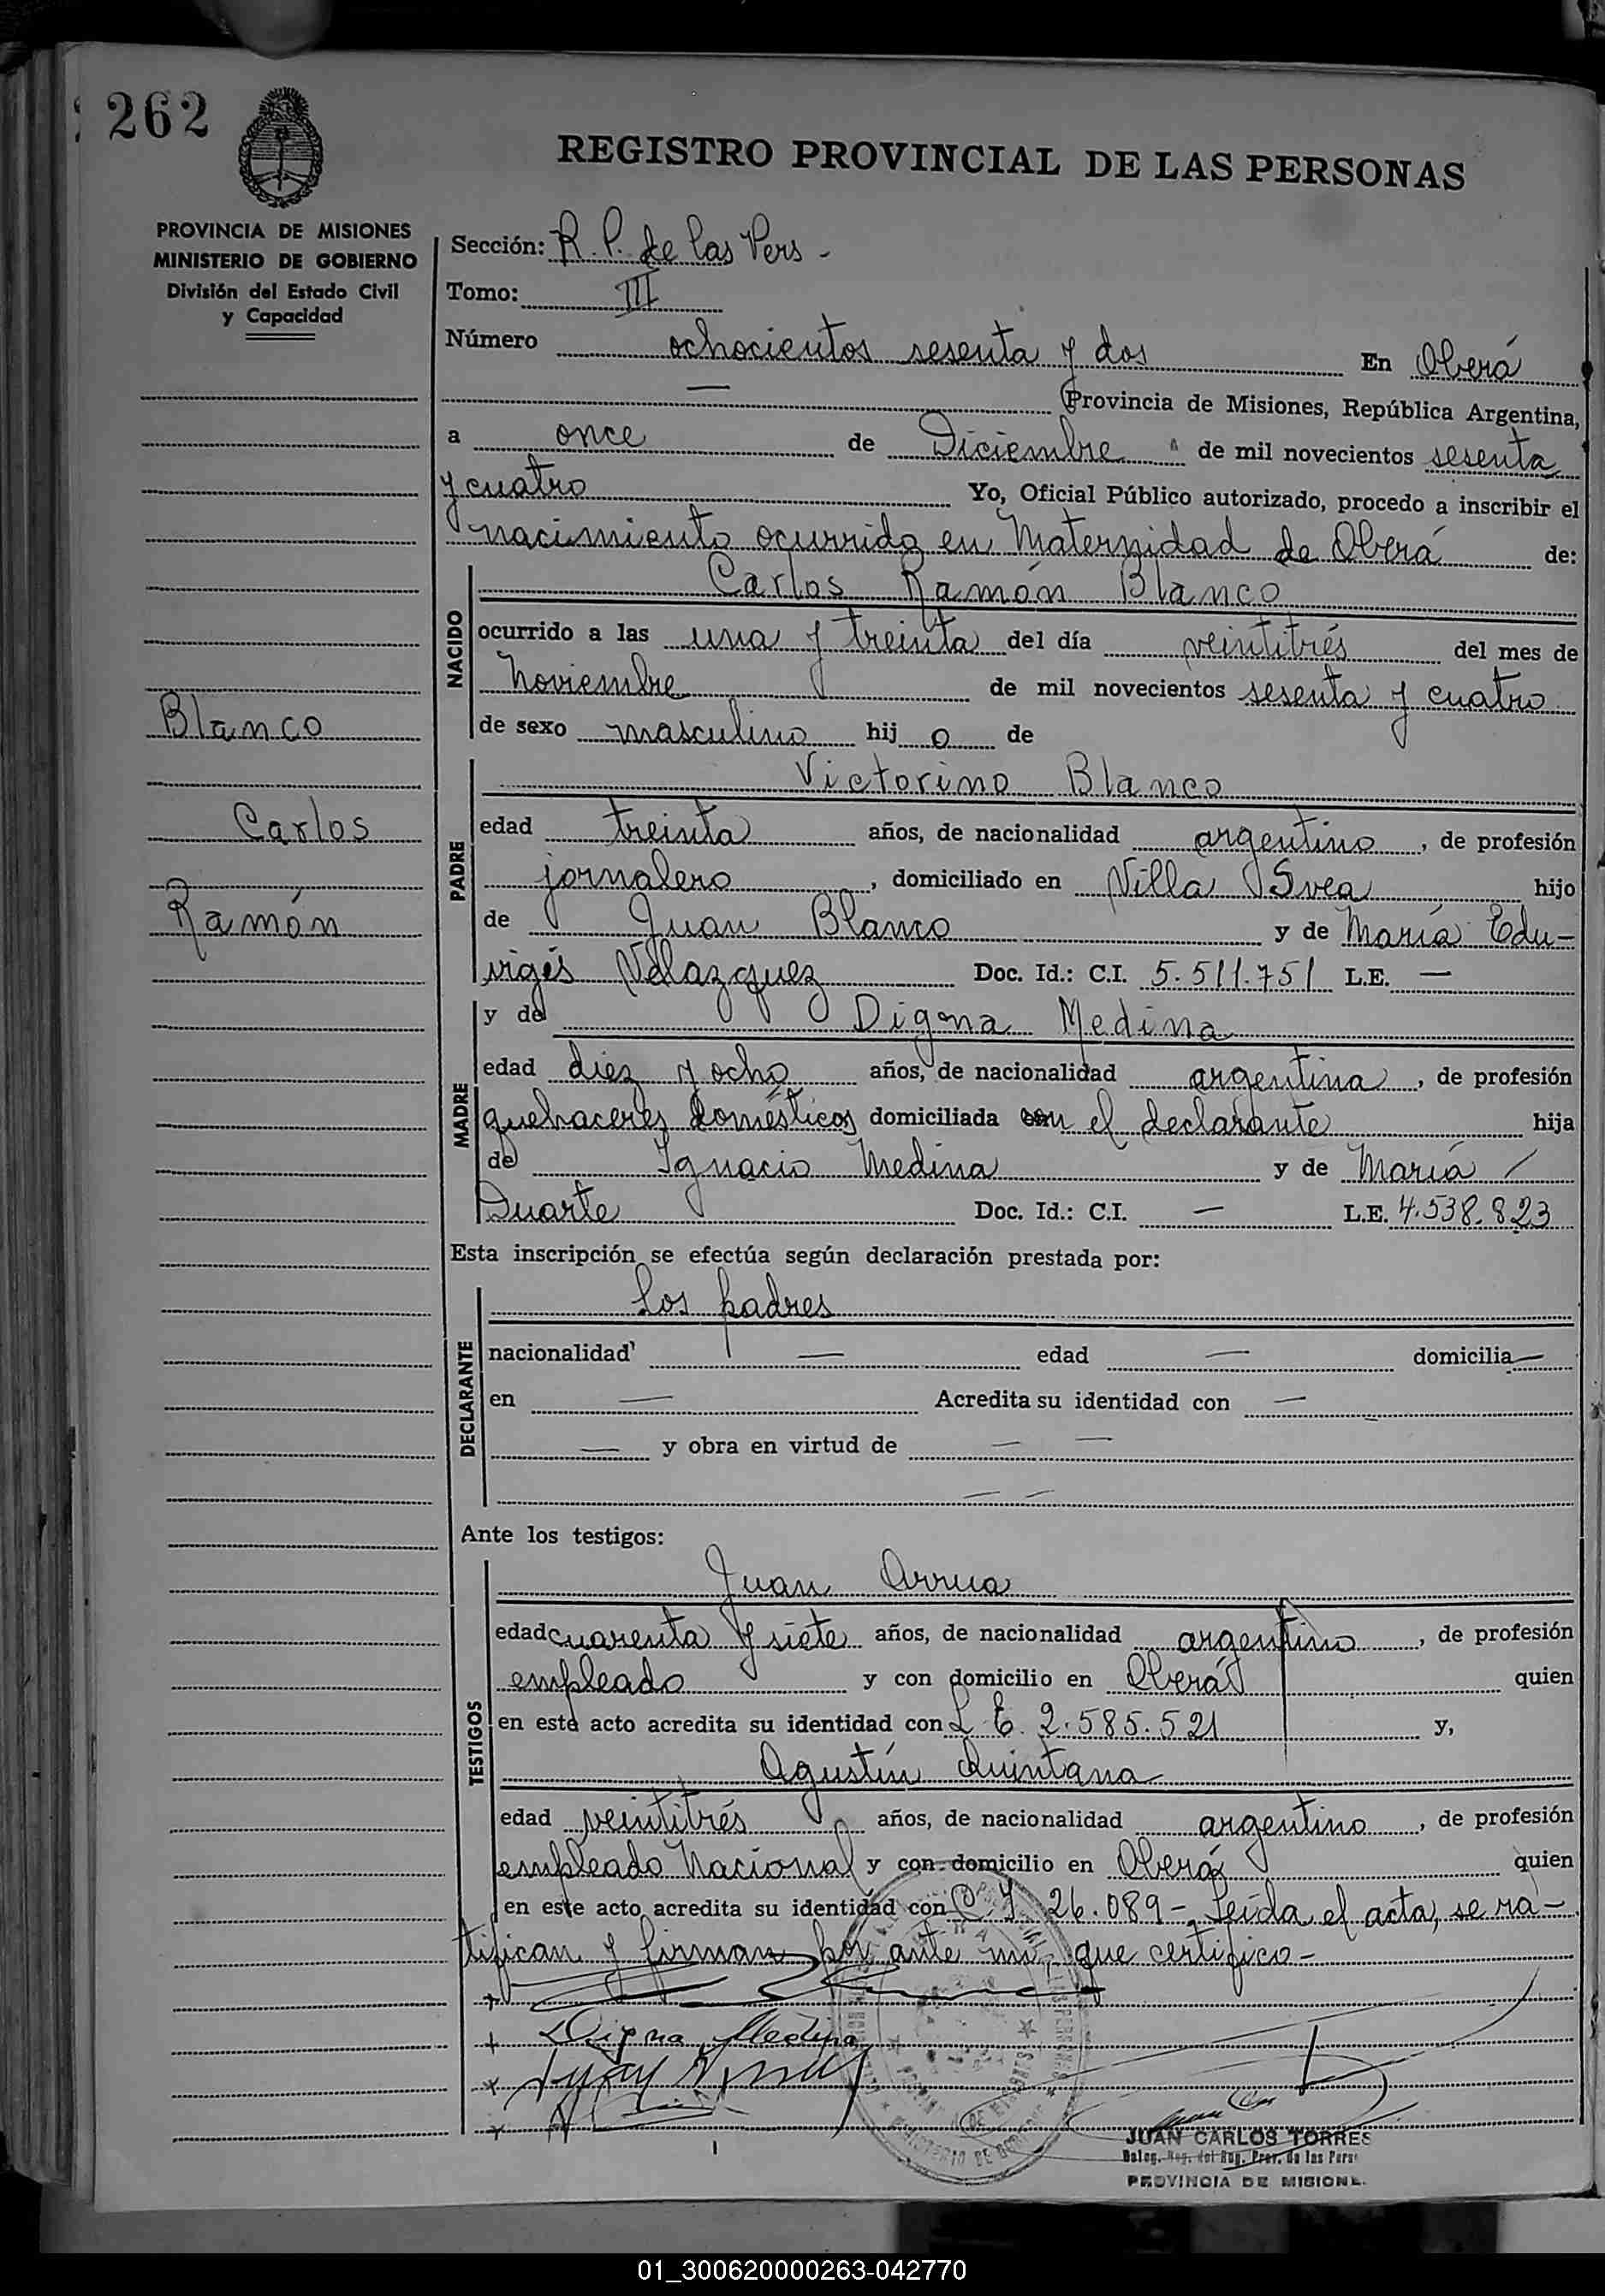 262
REGISTRO PROVINCIAL DE LAS PERSONAS
PROVINCIA DE MISIONES
MINISTERIO DE GOBIERNO
División del Estado Civil
y Capacidad
Sección: R. P. de las Pers -
Tomo: III
Número ochocientos sesenta y dos En Oberá
— Provincia de Misiones, República Argentina,
a once de Diciembre de mil novecientos sesenta
y cuatro Yo, Oficial Público autorizado, procedo a inscribir el
nacimiento ocurrido en Maternidad de Oberá de:
NACIDO
Carlos Ramón Blanco
ocurrido a las una y treinta del día veintitrés del mes de
Noviembre de mil novecientos sesenta y cuatro
de sexo masculino hij o de
Blanco
Carlos
Ramón
PADRE
Victorino Blanco
edad treinta años, de nacionalidad argentino, de profesión
jornalero, domiciliado en Villa Svea hijo
de Juan Blanco y de María Edu-
viges Velazquez Doc. Id.: C.I. 5.511.751 L.E. —
MADRE
y de Digna Medina
edad diez y ocho años, de nacionalidad argentina, de profesión
quehaceres domésticos domiciliada con el declarante hija
de Ignacio Medina y de María /
Duarte Doc. Id.: C.I. — L.E. 4.538.823
Esta inscripción se efectúa según declaración prestada por:
DECLARANTE
Los padres
nacionalidad — edad — domicilia —
en — Acredita su identidad con —
— y obra en virtud de — —
— —
Ante los testigos:
TESTIGOS
Juan Arrua
edad cuarenta y siete años, de nacionalidad argentino, de profesión
empleado y con domicilio en Oberá quien
en este acto acredita su identidad con L. E. 2.585.521 y,
Agustín Quintana
edad veintitrés años, de nacionalidad argentino, de profesión
empleado Nacional y con domicilio en Oberá quien
en este acto acredita su identidad con C. I. 26.089 - Leída el acta, se ra-
tifican y firman por ante mi, que certifico -
Digna Medina
JUAN CARLOS TORRES
Deleg. Reg. del Reg. Prov. de las Pers
PROVINCIA DE MISIONE.
01_300620000263-042770